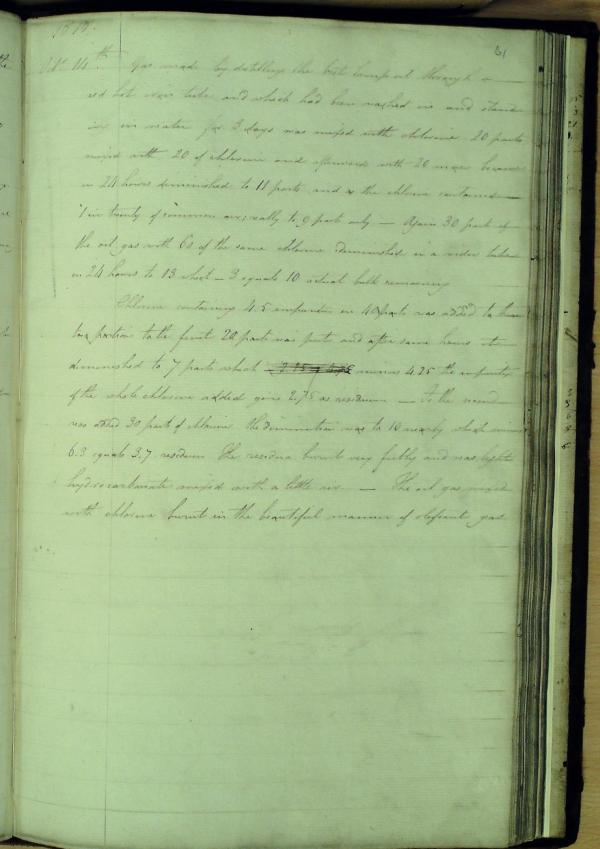 61
Oct 14th gas made by distilling the best lamp oil through a
red hot iron tube and which had been washed in and stand
ing in water for 3 days was mixed with chlorine 20 parts
mixed with 20 of chlorine and afterward with 20 more became
in 24 hours diminished to 11 parts and as the chlorine contained
1 in twenty of common air, really to 9 parts only — Again 30 parts of
the oil gas with 60 of the same chlorine diminished in a wider tube
in 24 hours to 13 which - 3 equals 10 actual bulk remaining
Chlorine containing 4.5 impurities in 40 parts was added to these
two portions to the first 20 parts was put and after some hours it
diminished to 7 parts which minus 4.25 the impurity
of the whole chlorine added gave 2.75 as residuum — To the second
was added 30 parts of chlorine the diminution was to 10 nearly which minus
6.3 equals 3.7 residuum The residua burnt very feebly and was light
hydrocarbonate mixed with a little air — The oil gas mixed
with chlorine burnt in the beautiful manner of olefiant gas